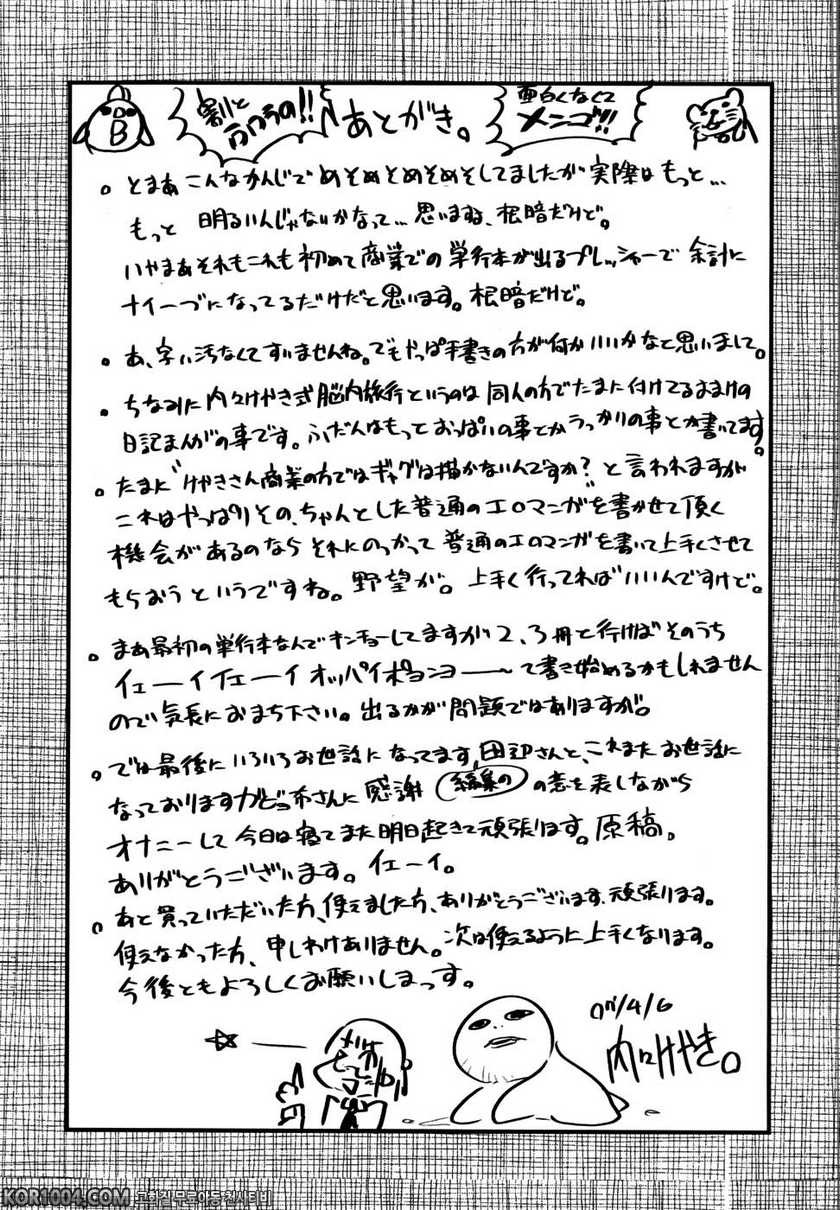 割と
あとがき。
面白くなくて
メンゴ!!!
とまあこんなかんじでめそめそめそめそしてましたが実際はもっと…
もっと 明るいんじゃないかなって…思いますね、根暗だけど。
いやまあそれもこれも初めて商業での単行本が出るプレッシャーで余計に
ナイーブになってるだけだと思います。根暗だけど。
あ、字い汚なくてすいませんね。でもやっぱ手書きの方が何かいいかなと思いまして。
ちなみに内々けやき式脳内旅行というのは同人の方でたまに付けてるおまけの
日記まんがの事です。ふだんはもっとおっぱいの事とかうっかりの事とか書いてます。
たまに"けやきさん商業の方ではギャグは描かないんですか?"と言われますが
これはやっぱりその、ちゃんとした普通のエロマンガを書かせて頂く
機会があるのならそれにのっかって普通のエロマンガを書いて上手くさせて
もらおうというですね。野望が。上手く行ってればいいんですけど。
まあ最初の単行本なんでキンチョーしてますが2、3冊と行けばそのうち
イェーイイェーイオッパイポヨンヨーーーて書き始めるかもしれません
ので気長におまち下さい。出るかが問題ではありますが。
では最後にいろいろお世話になってます、田辺さんと、これまたお世話に
なっております さんに感謝 編集の の意を表しながら
オナニーして今日は寝てまた明日起きて頑張ります。原稿。
ありがとうございます。イェーイ。
あと買っていただいた方、使えました方、ありがとうございます、頑張ります。
使えなかった方、申しわけありません。次は使えるように上手くなります。
今後ともよろしくお願いしまっす。
07/4/6
内々けやき。
KOR1004.COM